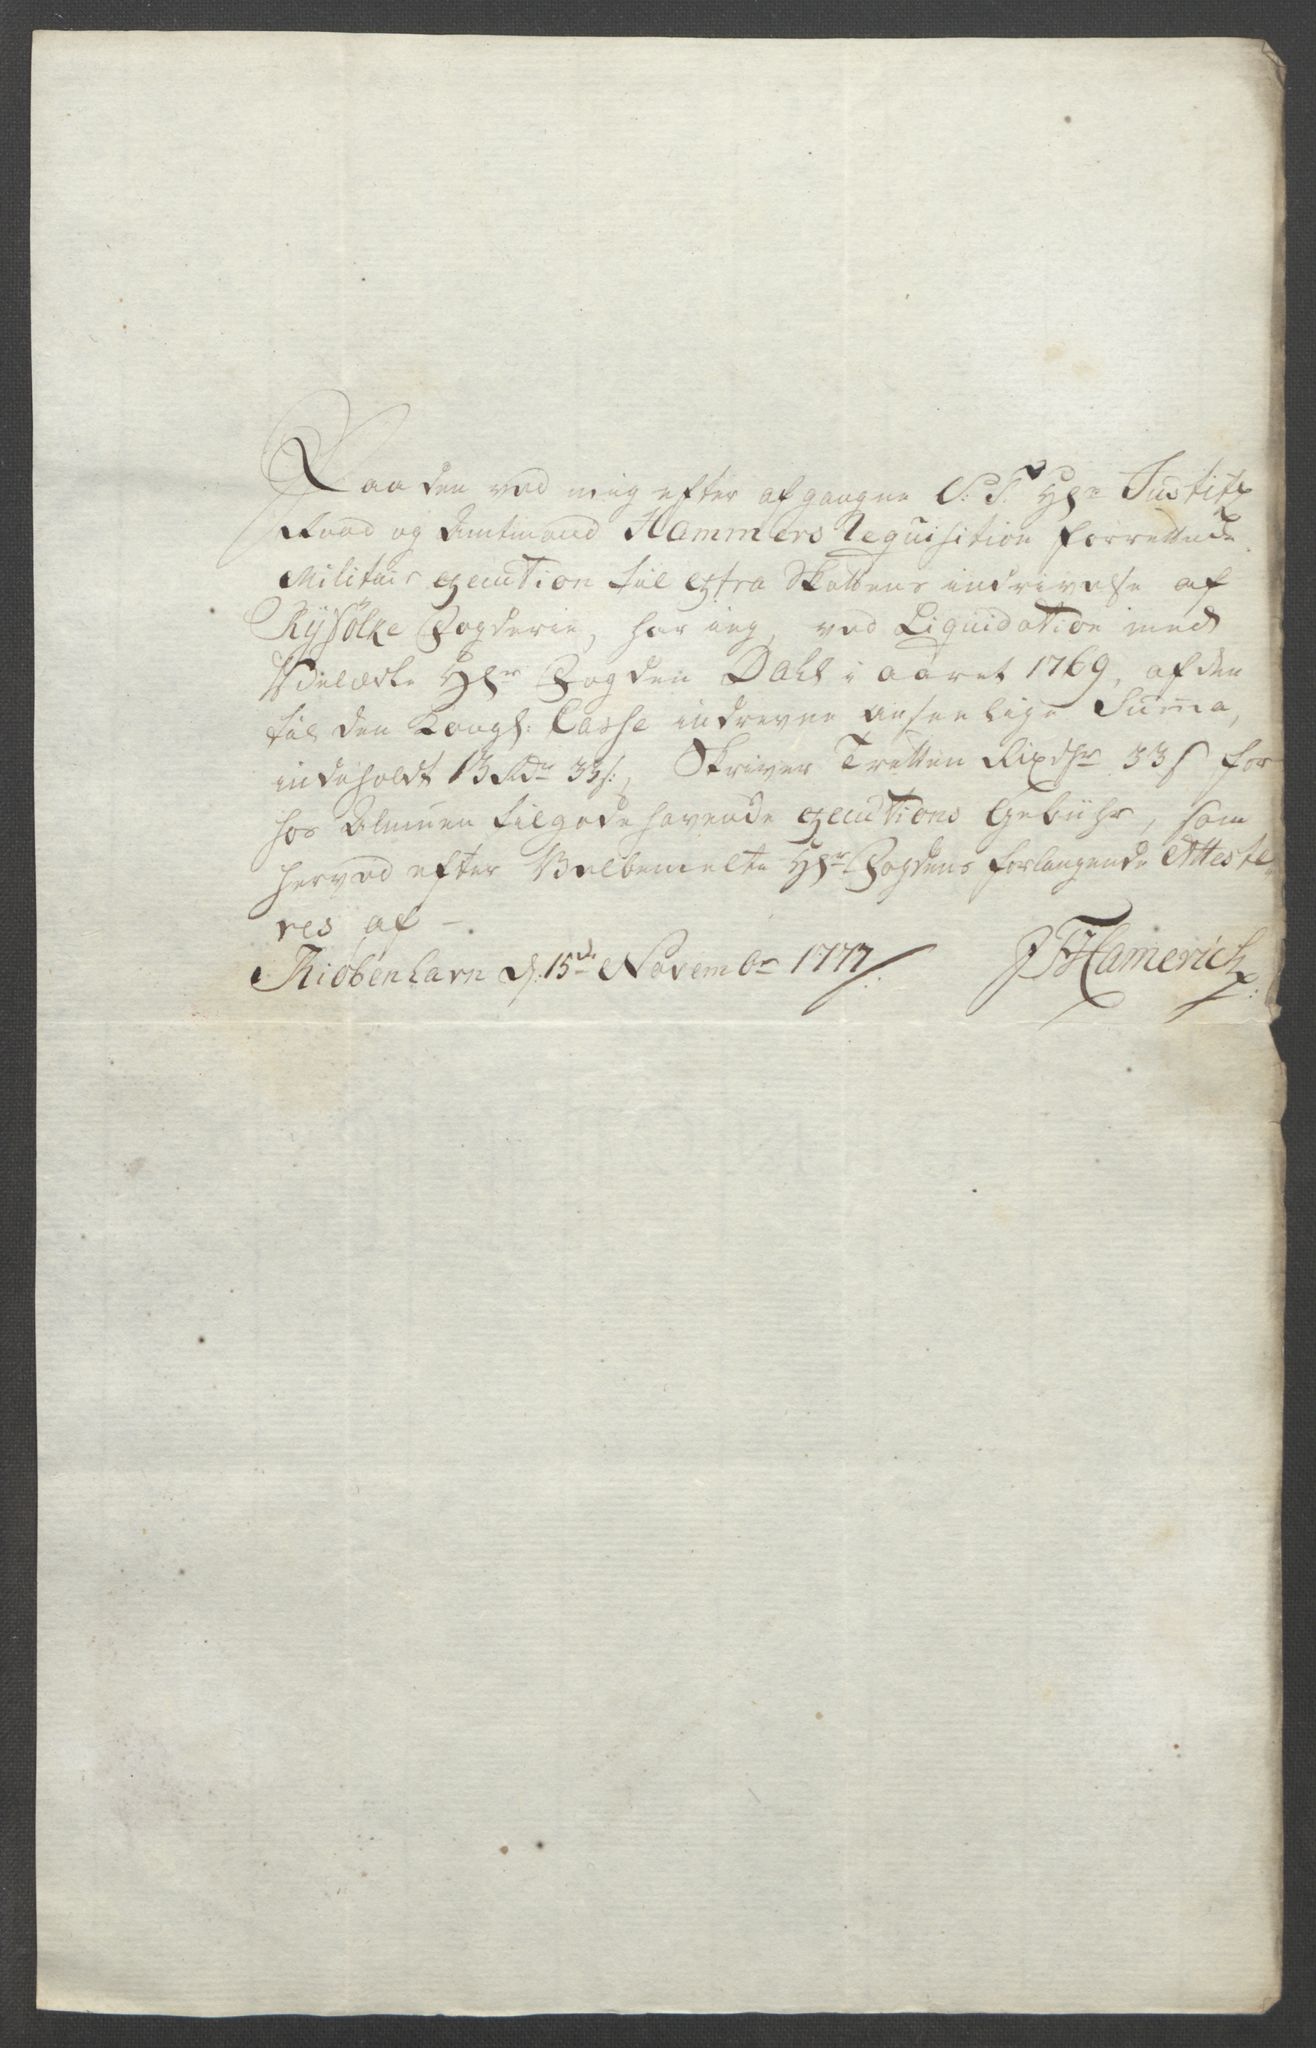 Paa den ved mig efter afgangne S: T: Hr Justitz
Raad og Amtmand Hammers Requisition forrettede
Militair execution til Extra Skattens indrivelse af
Ryfölke Fogderie, har ieg, ved Liquidation med
Velædle Hr Fogden Dahl i aaret 1769, af den
til den Kongl: Casse indrevne anseelige Summa,
indeholdt 13 Rdr 33 s:, Skriver Tretten Rixdhr 33 s for
hos Almuen tilgodehavende executions Gebühr, som
herved efter Velbemelte Hr Fogdens forlangende Atteste
res af -
Kiöbenhavn d: 15de Novembr 1777 /. JFHamerich